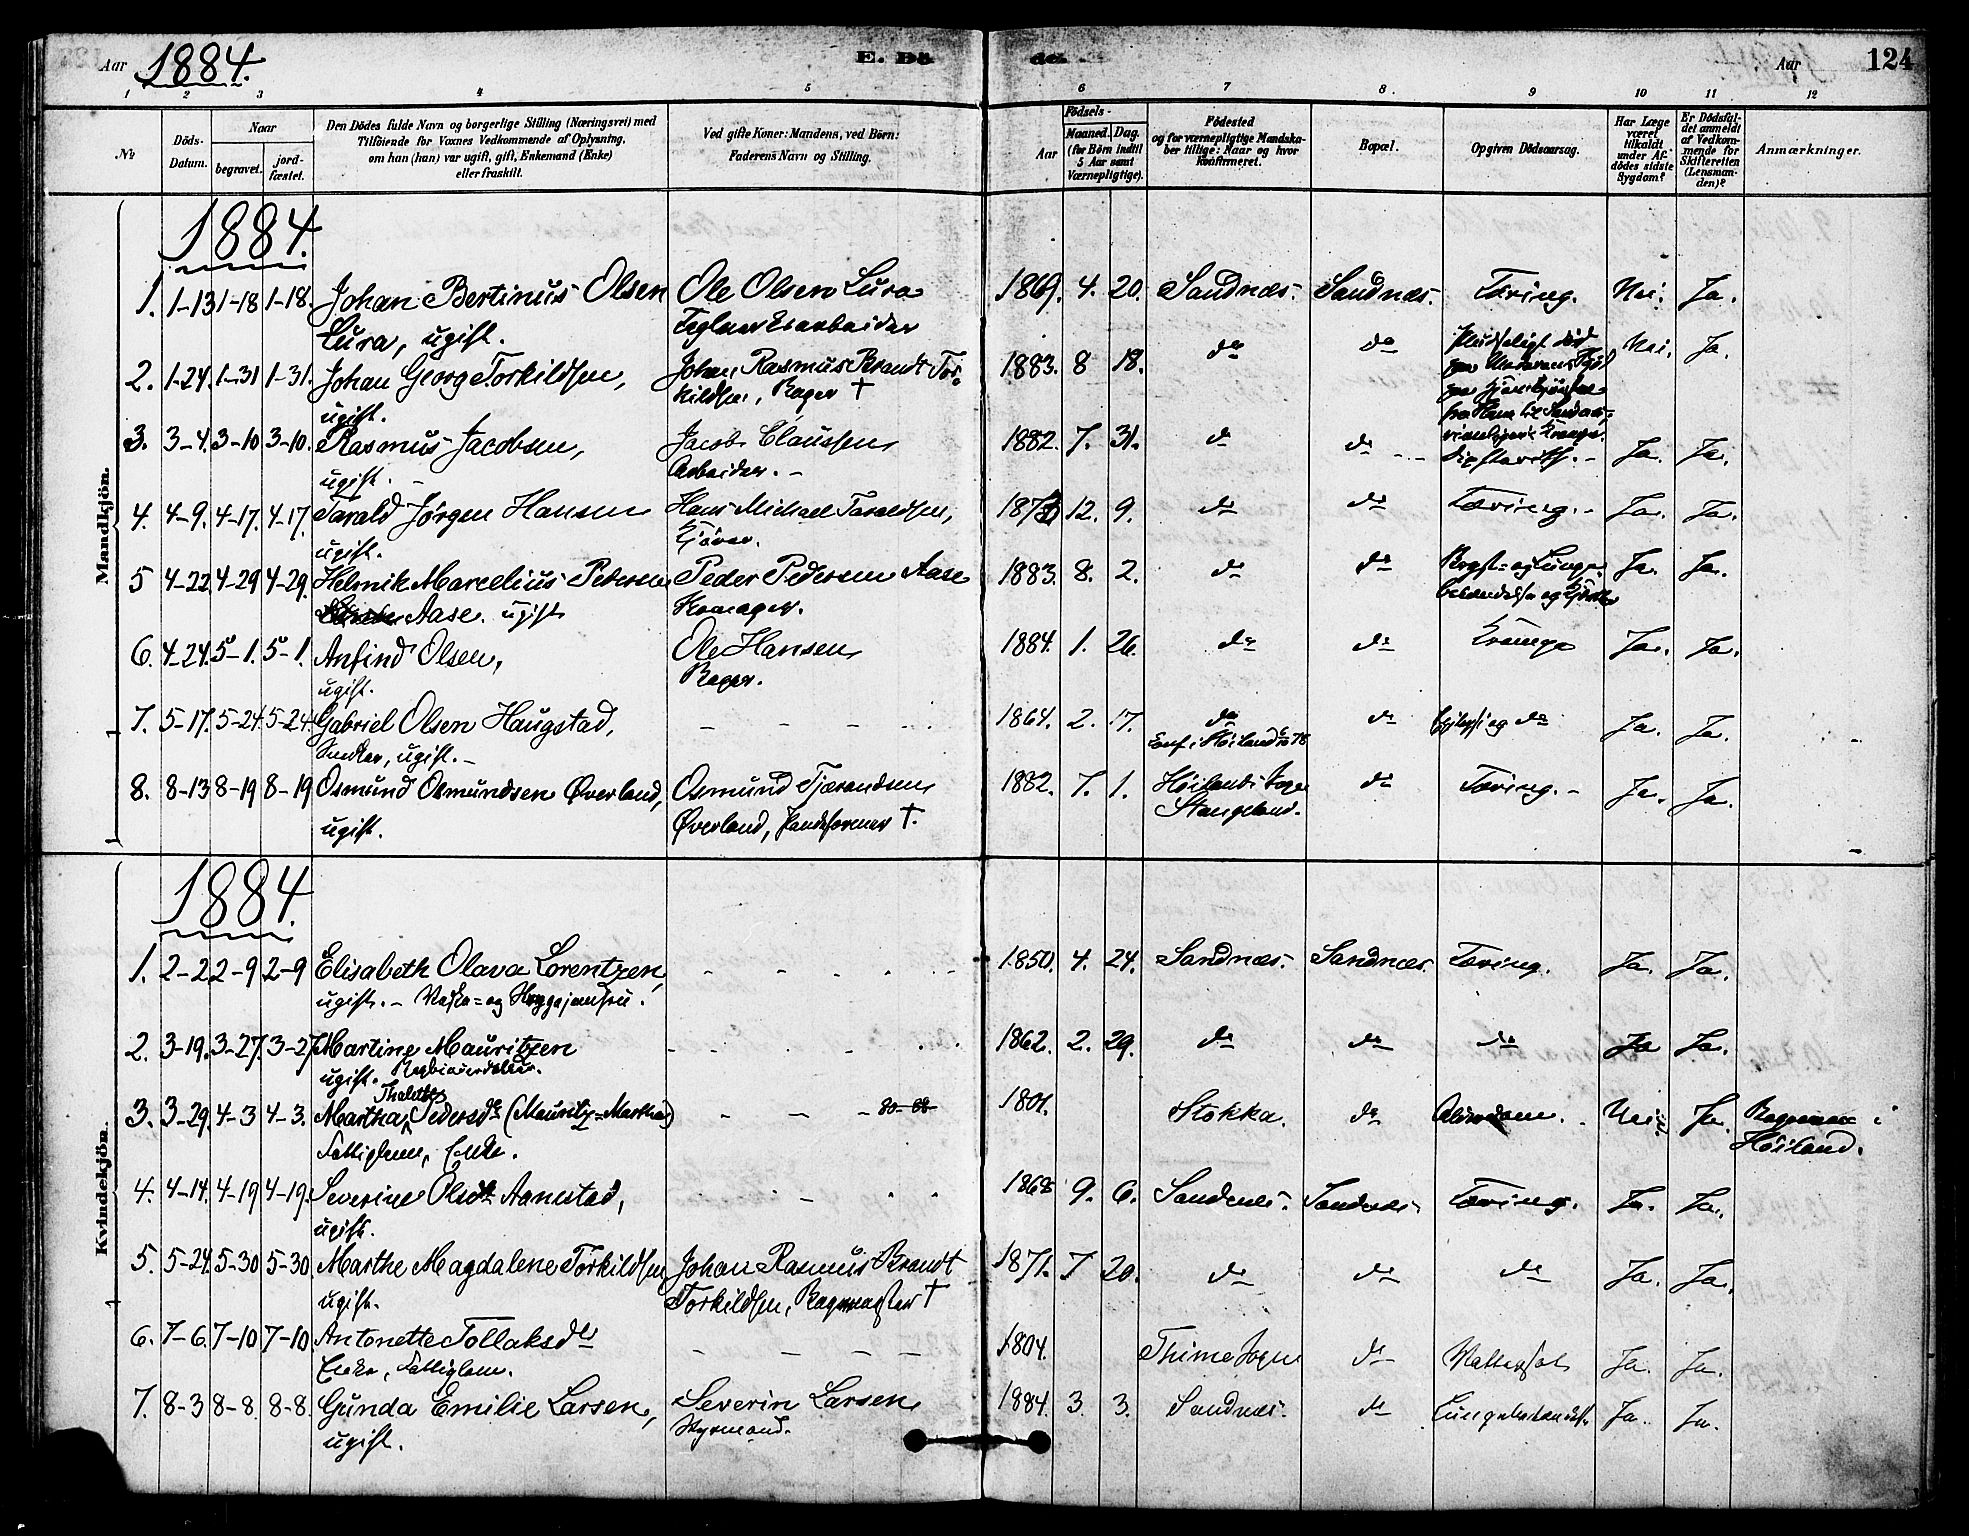 Aar 1884.
E. Dö
de.
Aar
124
1 2 3 4 5 6 7 8. 9 10 11 12
No
Döds-Datum.
Naar
begravet.
jord-fæstet.
Den Dödes fulde Navn og borgerlige Stilling (Næringsvei) med
Tilföiende for Voxnes Vedkommende af Oplysning,
om han (hun) var ugift, gift, Enkemand (Enke)
eller fraskilt.
Ved gifte Koner: Mandens, ved Børn:
Faderens Navn og Stilling.
Födsels-
Aar
Maaned.
Dag.
(for Børn indtil
5 Aar samt
Værnepligtige).
Födested
og for værnepligtige Mandska-
ber tillige: Naar og hvor
konfirmeret.
Bopæl.
Opgiven Dödsaarsag.
Har Læge
været
tilkaldt
under Af-
dödes sidste
Sygdom?
Er Dödsfal-
det anmeldt
af Vedkom-
mende for
Skifteretten
(Lensman-
den)?
Anmærkninger.
Mandkjön.
1884.
1. 1-13 1-18 1-18. Johan Bertinus Olsen Ole Olsen Lura 1869. 4. 20. Sandnæs. Sandnæs. Tæring. Nei. Ja.
Lura, ugift. Teglværksarbeider
2. 1-24. 1-31 1-31. Johan Georg Torkildsen, Johan Rasmus Brandt Tor- 1883. 8 18. do do Pludseligt død Nei. Ja.
ugift. kildsen, Bager †
3. 3-4. 3-10 3-10. Rasmus Jacobsen, Jacob Claussen 1882. 7. 31. do do Ja. Ja.
ugift. Arbeider.
4. 4-9. 4-17. 4-17. Tarald Jørgen Hansen Hans Michael Taraldsen, 12. 9. do do Tæring. Ja. Ja.
ugift.
5 4-22 4-29 4-29. Helmik Marcelius Petersen Peder Pedersen Aase 1883. 8. 2. do do Bryst- og Lunge- Ja. Ja.
Aase. ugift
6. 4-24. 5-1. 5-1. Anfind Olsen, Ole Hansen 1884. 1. 26. do do Krampe Ja. Ja.
ugift. Bager.
7. 5-17. 5-24. 5-24 Gabriel Olsen Haugstad, 1864. 2. 17. do do Epilepsi og do Ja. Ja.
Snedker, ugift. Conf. i Høiland
8. 8-13 8-19 8-19 Osmund Osmundsen Øverland, Osmund Tjærandsen 1882. 7. 1. Høilands Sogn do Tæring. Ja. Ja.
ugift. Øverland, †. Stangeland.
Kvindekjön.
1884.
1. 2-2 2-9 2-9 Elisabeth Olava Lorentzen, 1850. 4. 24. Sandnæs. Sandnæs. Tæring. Ja. Ja.
ugift. - Vaske- og
2. 3-19. 3-27. 3-27 Martine Mauritzen 1862. 2. 29. do do do Ja Ja.
ugift.
3. 3-29. 4-3 4-3. Martha Pedersdr (Mauritz-Martha) 1801. Stokka. do Alderdom. Nei. Ja.
Fattiglem, Enke. Høiland.
4. 4-14. 4-19 4-19. Severine Olsdtr Aanestad, 1868 9. 6. Sandnæs. Sandnæs. Tæring. Ja. Ja.
ugift.
5. 5-24. 5-30 5-30. Marthe Magdalene Torkildsen Johan Rasmus Brandt 1871. 7 20. do do do Ja. Ja.
ugift. Torkildsen, Bagermester †
6. 7-6. 7-10 7-10 Antonette Tollaksdtr 1804. Thime Sogn do Vattersot Ja. Ja.
Enke, Fattiglem.
7. 8-3 8-8. 8-8. Gunda Emilie Larsen, Severin Larsen 1884. 3. 3. Sandnæs. do Lungebetændelse Ja. Ja.
ugift. Styrmand.